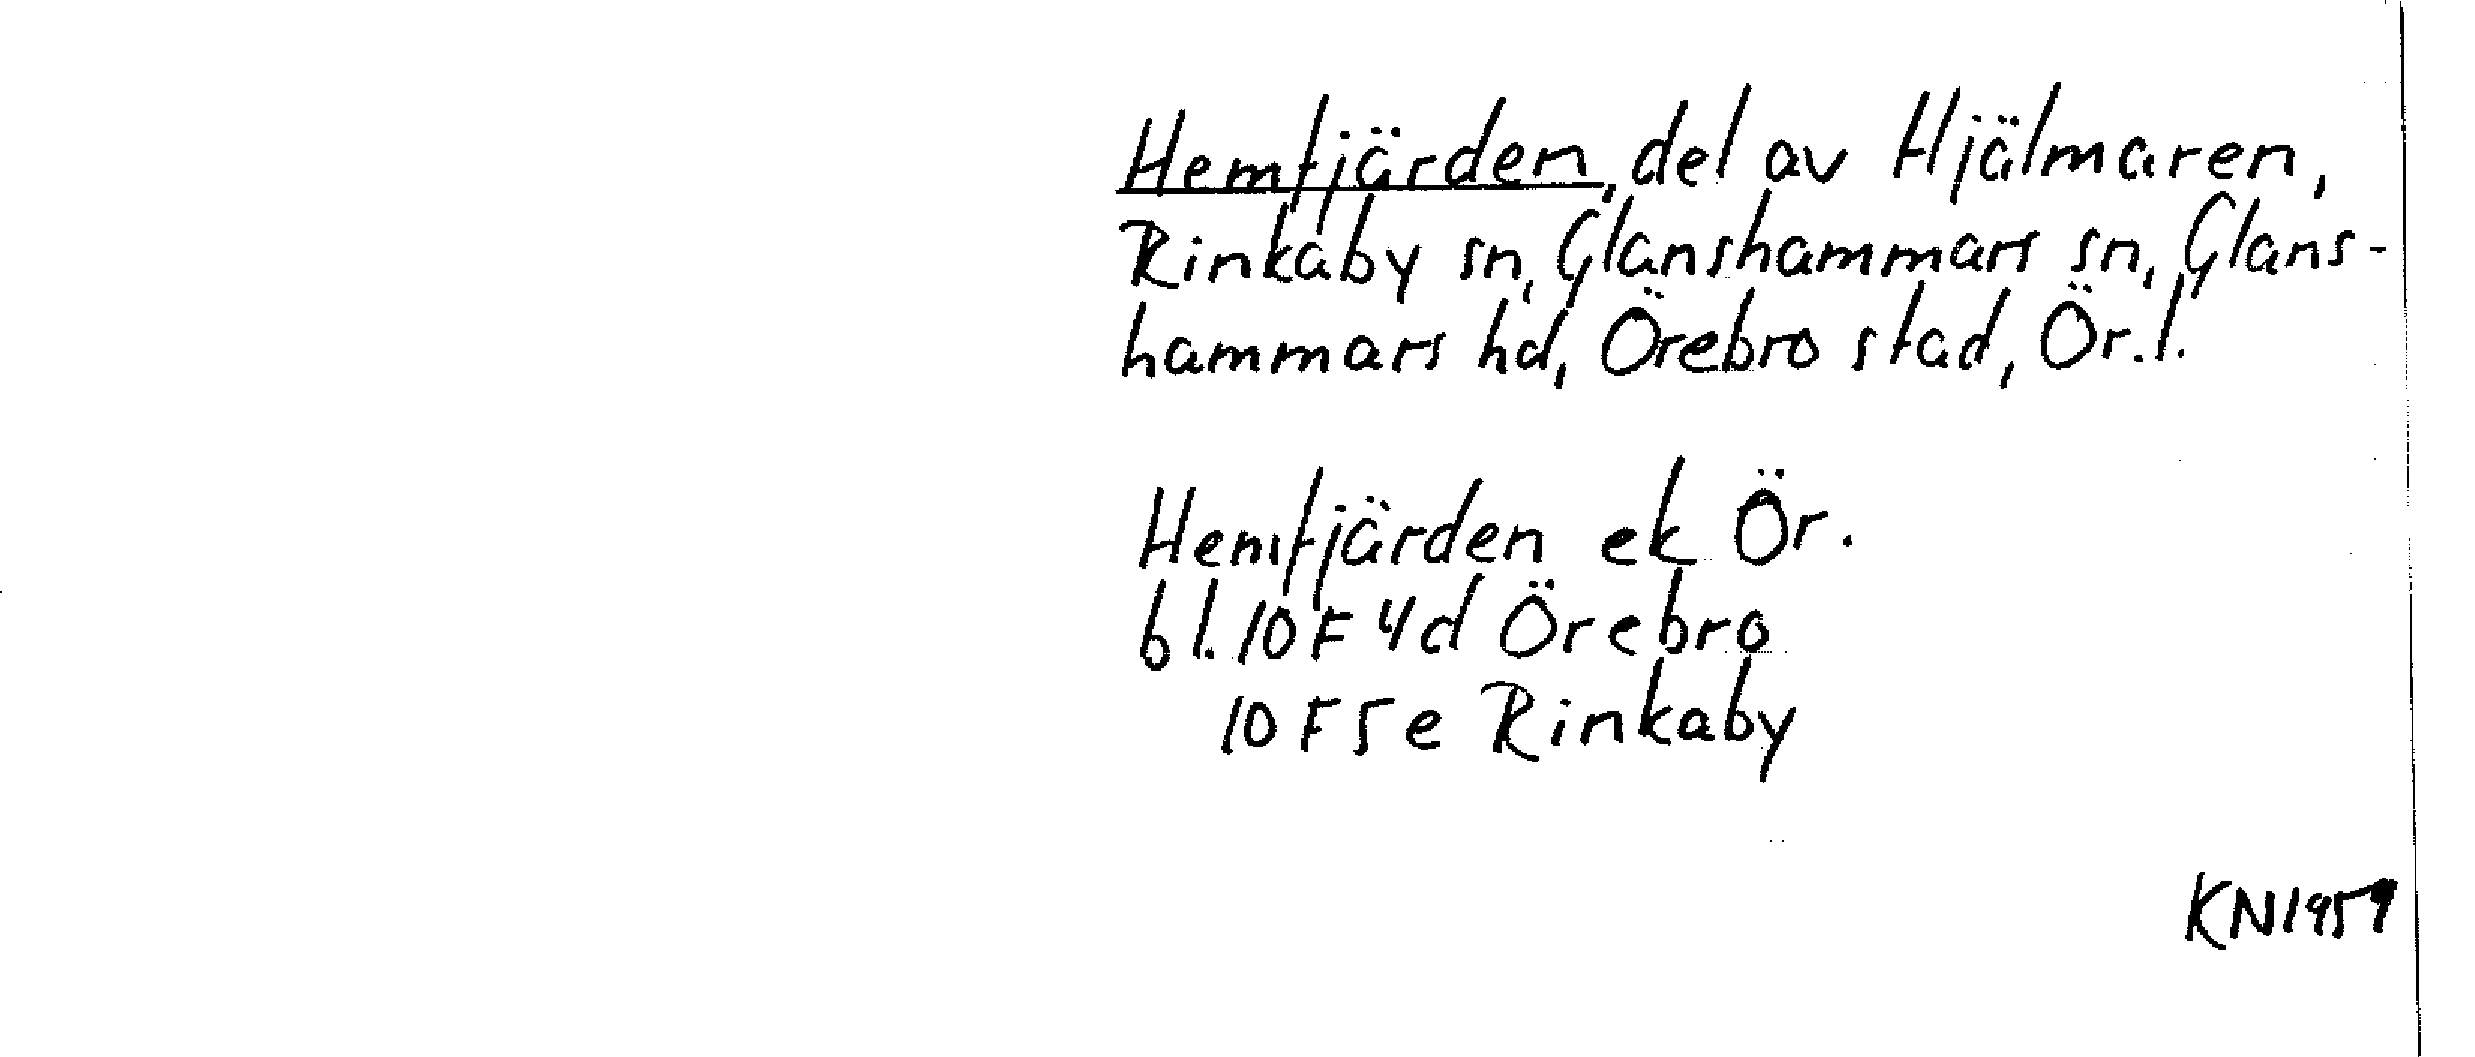 Hemfjärden, del av Hjälmaren,
Rinkaby sn, Glanshammars sn, Glans-
hammars hd, Örebro stad, Ör. l.
Hemfjärden ek Ör.
bl. 10F 4d Örebro
10F 5e Rinkaby
KN1959